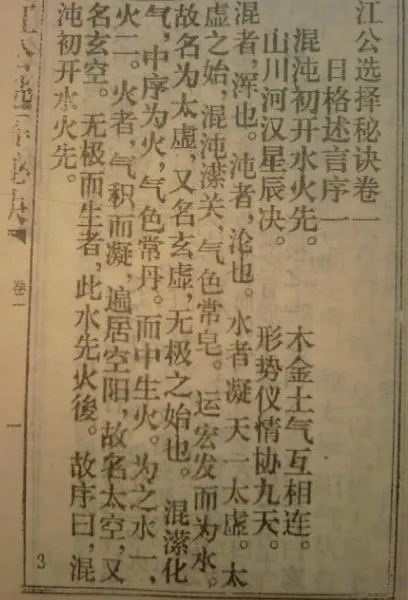 江公选择秘诀卷一
日格述言序一
混沌初开水火先。 木金土气互相连。
山川河汉星辰决。 形势仪情协九天。
混者，浑也。沌者，沦也。水者凝天一太虚。太
虚之始，混沌溁关，气色常皂。运宏发而为水。
故名为太虚，又名玄虚，无极之始也。混溁化
气，中序为火，气色常丹。而中生火。为之水一，
火二。火者，气积而凝，遍居空阳，故名太空，又
名玄空。无极而生者，此水先火後。故序曰，混
沌初开水火先。
江公选择秘诀
卷一
一
3